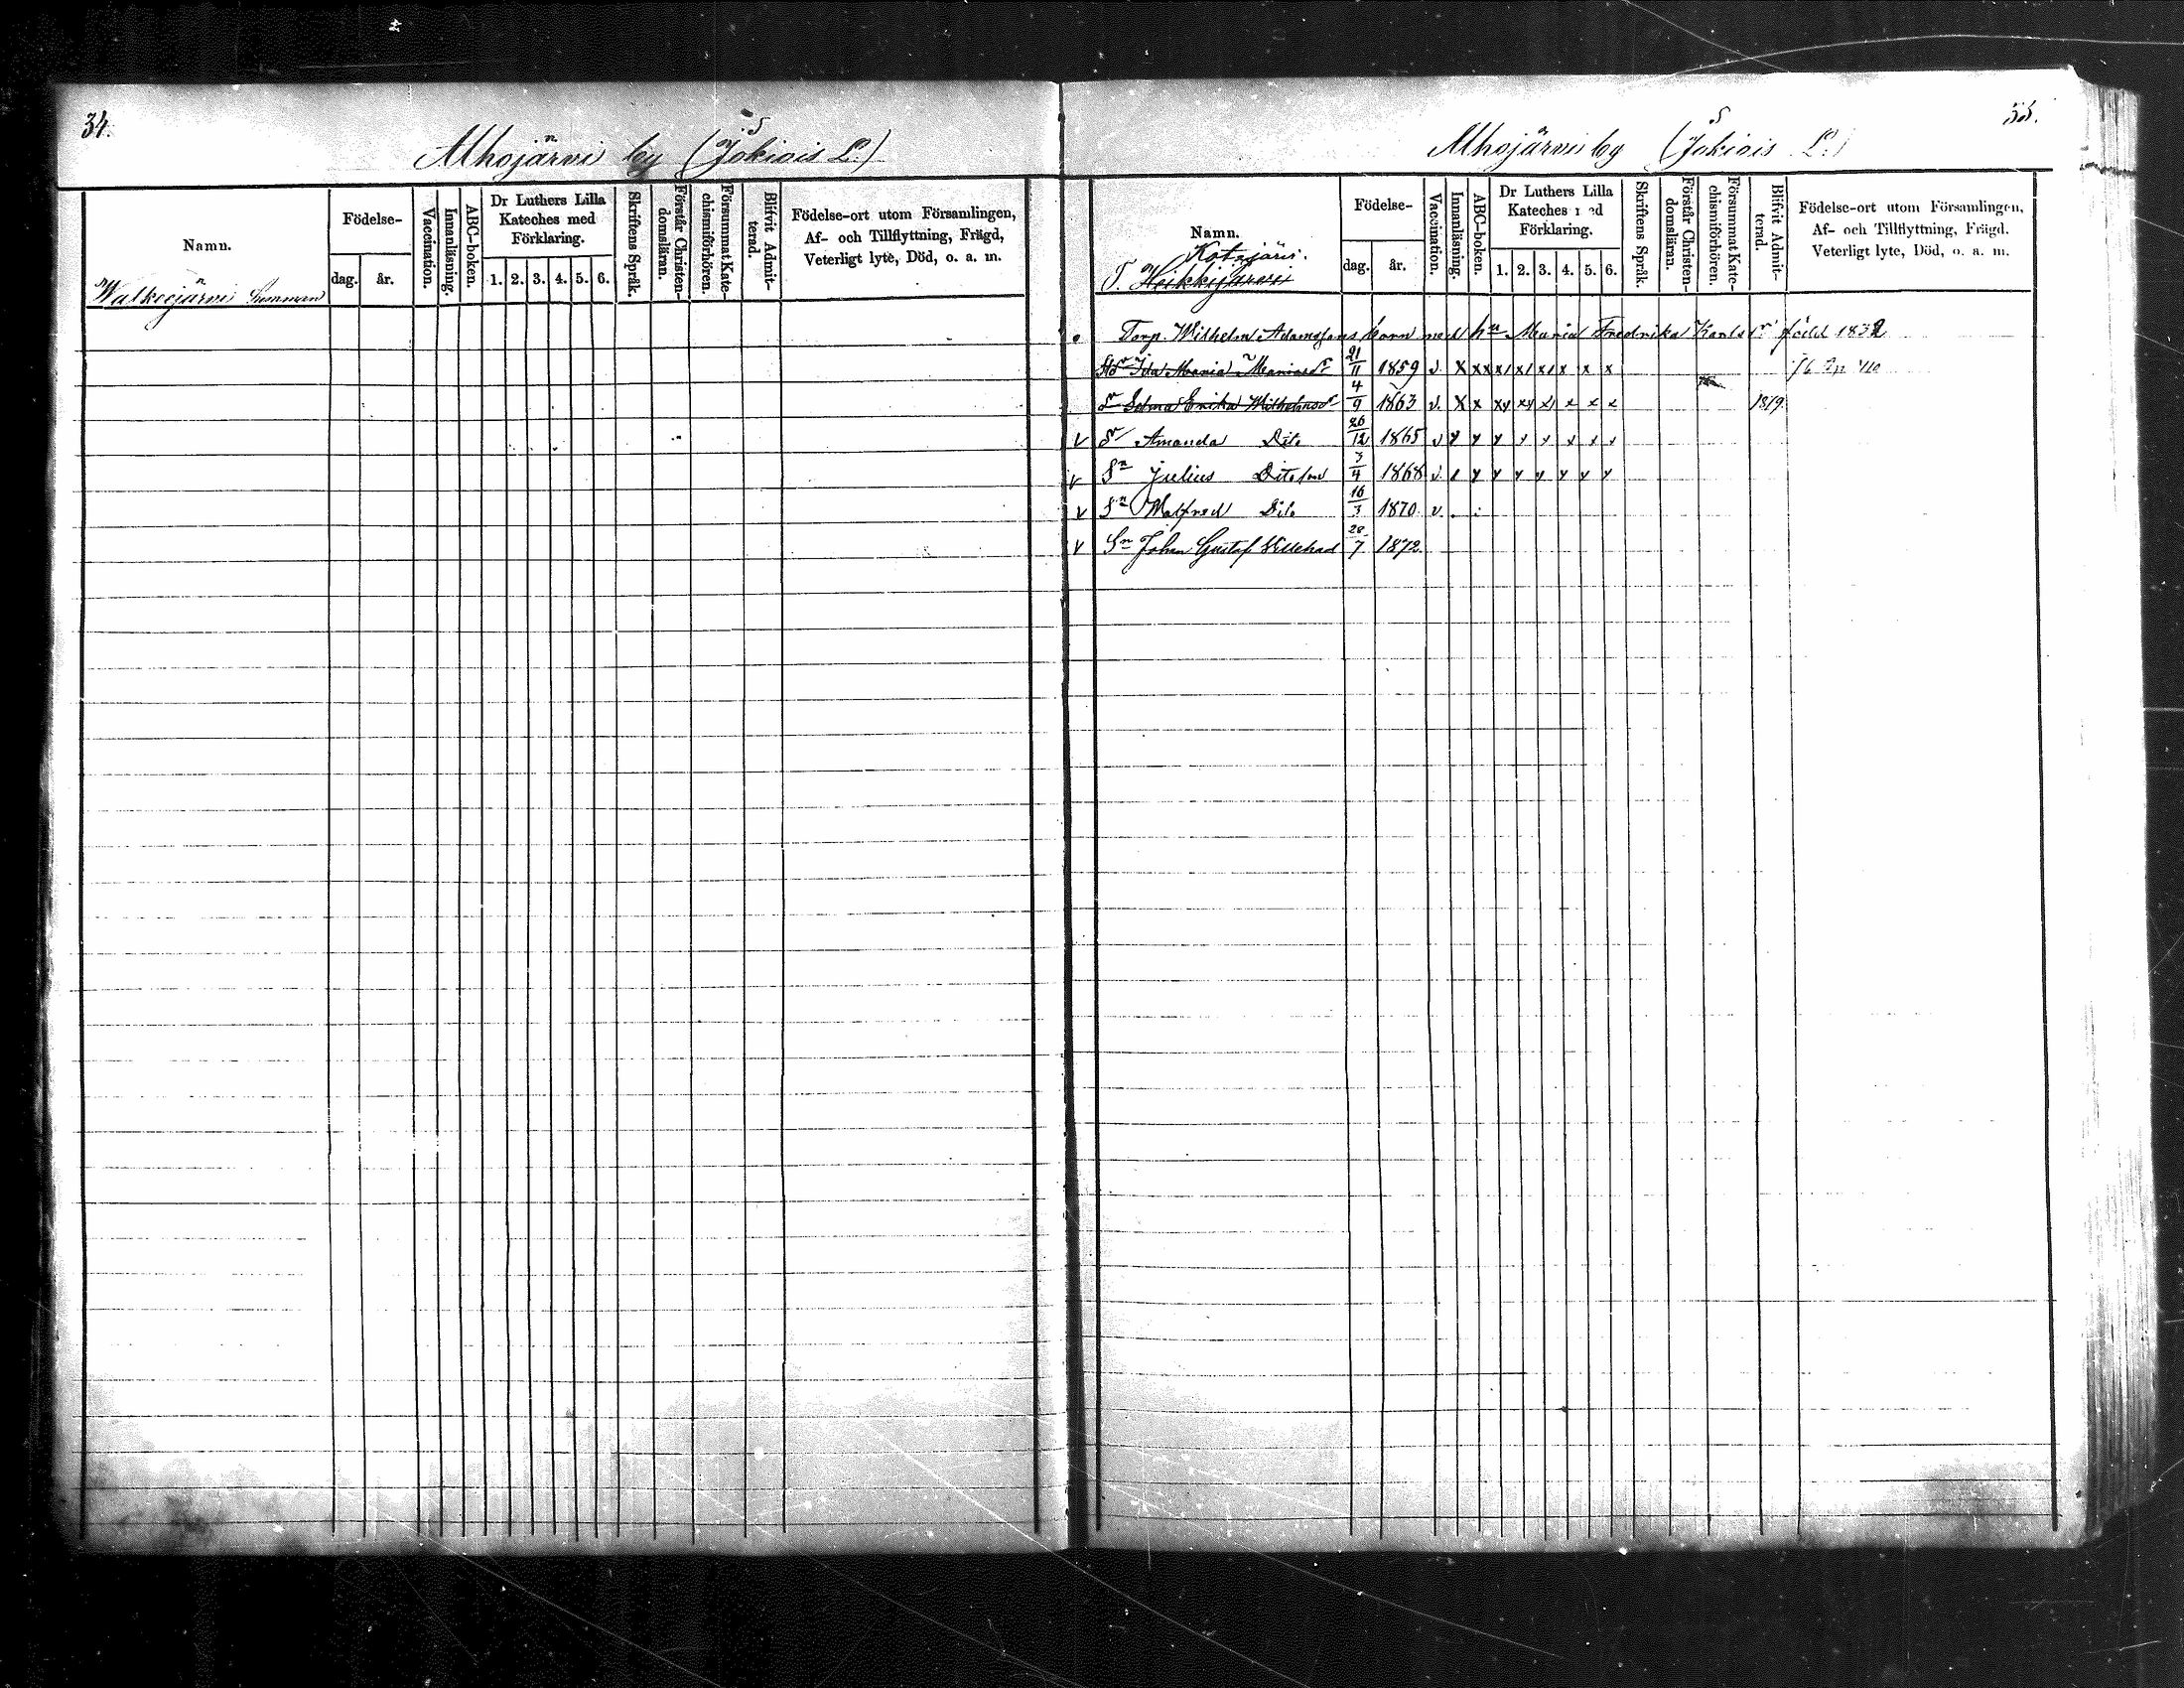 34.
Alhojärvi by (Jokiois L.)
Namn.
Födelse-
dag.
år.
Vaccination.
Innanläsning.
ABC-boken.
Dr Luthers Lilla
Kateches med
Förklaring.
1. 2. 3. 4. 5. 6.
Skriftens Språk.
Förstår Christen-
domsläran.
Försummat Kate-
chismiförhören.
Blifvit Admit-
terad.
Födelse-ort utom Församlingen,
Af- och Tillflyttning, Frägd,
Veterligt lyte, Död, o. a. m.
Walkeejärvi
35.
Alhojärvi by (Jokiois L.)
Namn.
Födelse-
dag.
år.
Vaccination.
Innanläsning.
ABC-boken.
Dr Luthers Lilla
Kateches med
Förklaring.
1. 2. 3. 4. 5. 6.
Skriftens Språk.
Förstår Christen-
domsläran.
Försummat Kate-
chismiförhören.
Blifvit Admit-
terad.
Födelse-ort utom Församlingen,
Af- och Tillflyttning, Frägd.
Veterligt lyte, Död, o. a. m.
Kotajärvi.
T. Heikkijärvi
Torp. Wilhelm Adamssons barn med hu Maria Fredrika Karlsdr född 1832
Ida Maria 21/11 1859 v. X xx x/ x/ x/ x x x
Dr Selma Erika Wilhelmsdr 4/9 1863 v. X x xy xy x/ x x x 1879.
v Dr Amanda Dito 26/12 1865 v y y y y y x x x
v Sn Julius Dito son 3/4 1868 v. / y y y y y y y
v Sn Walfred Dito 16/3 1870 v.
v Sn Johan Gustaf Willehad 28/7 1872